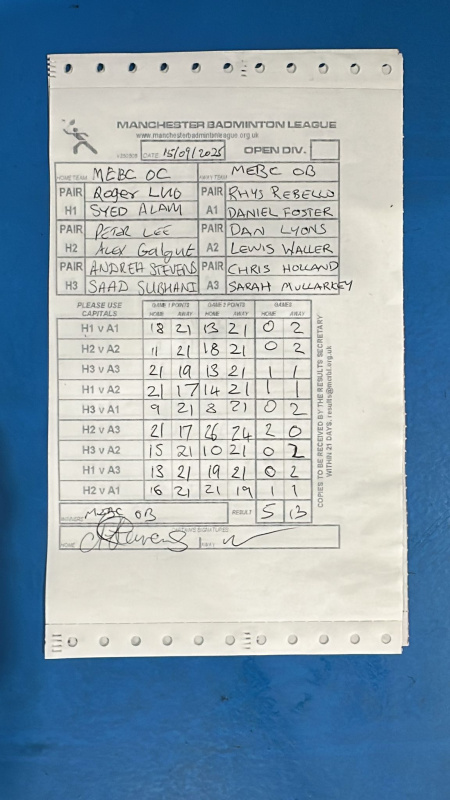 MANCHESTER BADMINTON LEAGUE
www.manchesterbadmintonleague.org.uk
DATE 15/09/2025 OPEN DIV.
HOME TEAM MEBC OC AWAY TEAM MEBC OB
PAIR Roger LUO PAIR RHYS REBELLO
H1 SYED ALAM A1 DANIEL FOSTER
PAIR PETER LEE PAIR DAN LYONS
H2 ALEX Galgut A2 LEWIS WALLER
PAIR ANDREA STEVENS PAIR CHRIS HOLLAND
H3 SAAD SUBHANI A3 SARAH MULLARKEY
PLEASE USE GAME 1 POINTS GAME 2 POINTS GAMES
CAPITALS HOME AWAY HOME AWAY HOME AWAY
H1 v A1 18 21 13 21 0 2
H2 v A2 11 21 18 21 0 2
H3 v A3 21 19 13 21 1 1
H1 v A2 21 17 14 21 1 1
H3 v A1 9 21 8 21 0 2
H2 v A3 21 17 26 24 2 0
H3 v A2 15 21 10 21 0 2
H1 v A3 13 21 19 21 0 2
H2 v A1 16 21 21 19 1 1
WINNERS MEBC OB RESULT 5 13
CAPTAINS SIGNATURES
HOME AWAY
COPIES TO BE RECEIVED BY THE RESULTS SECRETARY
WITHIN 21 DAYS.